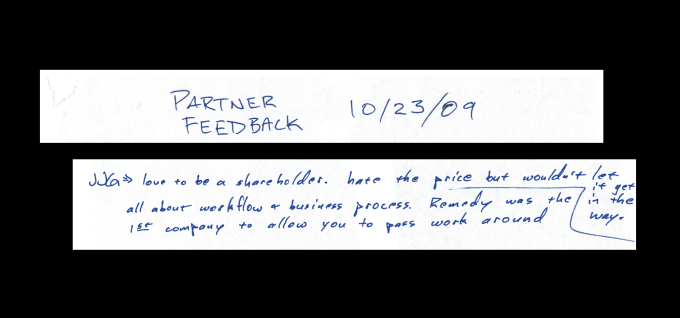 PARTNER
FEEDBACK
10/23/09
JJG => love to be a shareholder. hate the price but wouldn't let
it get
in the
way.
all about workflow & business process. Remedy was the
1st company to allow you to pass work around